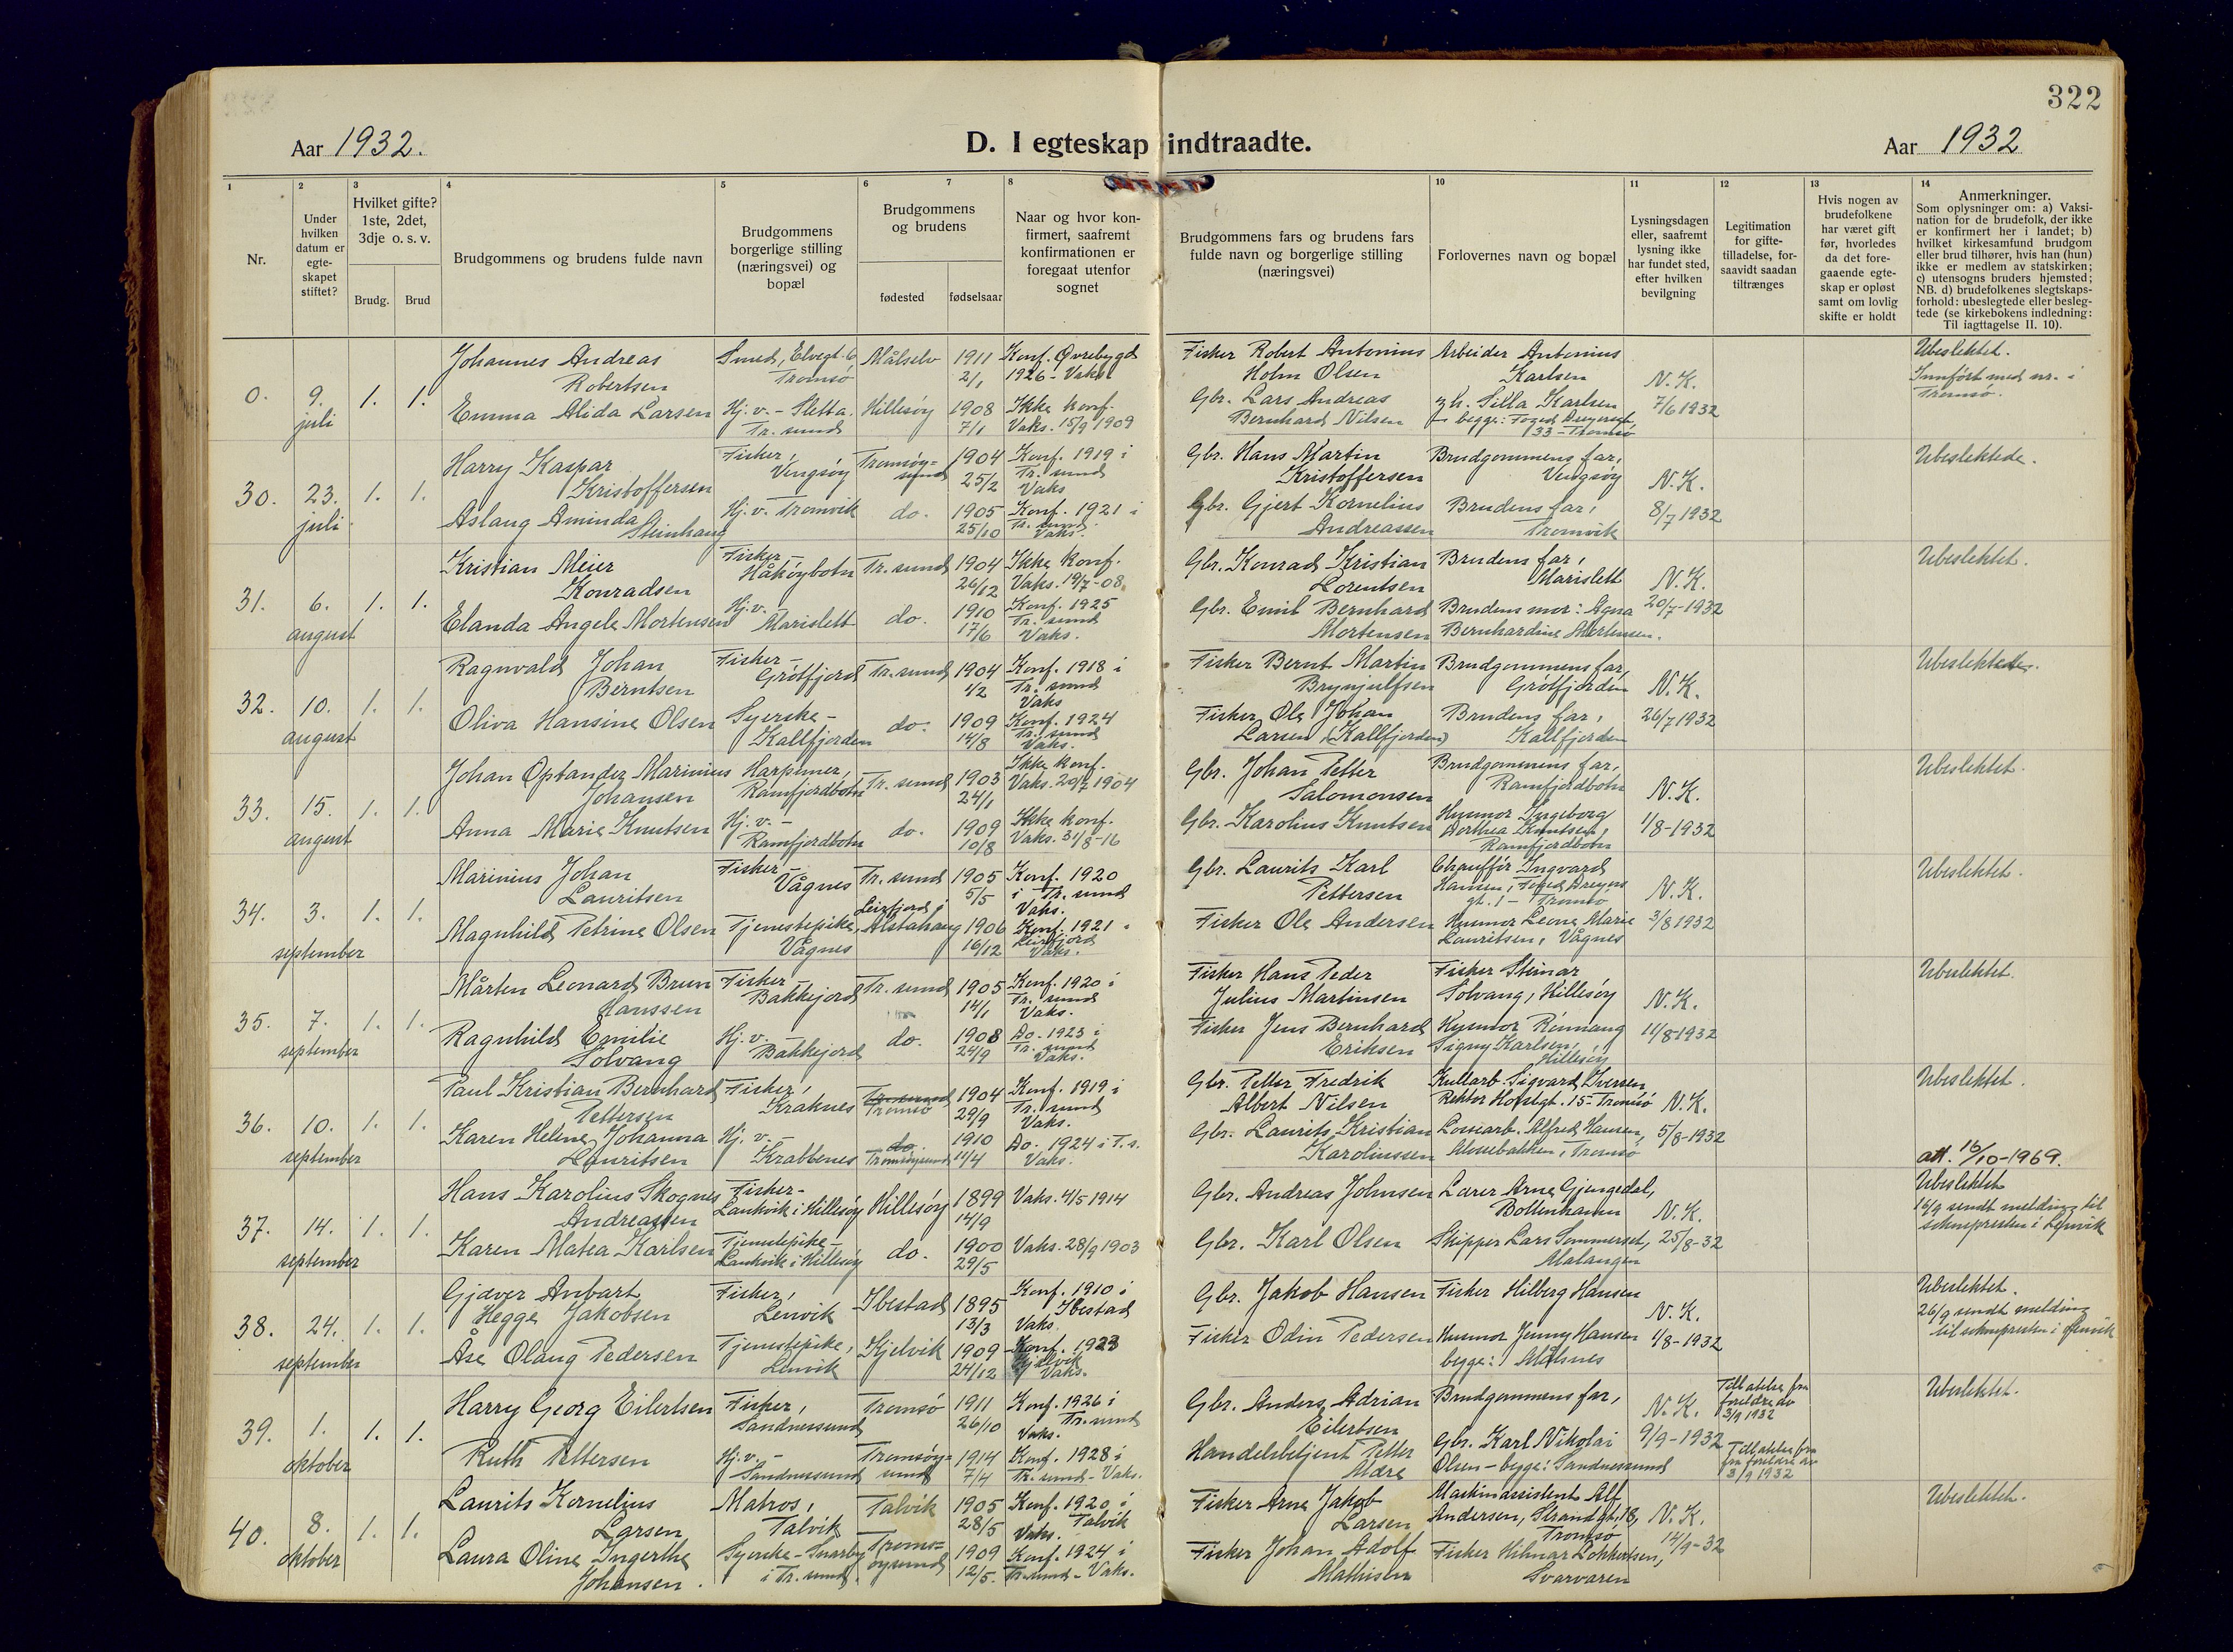 322
Aar 1932.
D. I egteskap indtraadte.
Aar 1932
1
2
3
4
5
6
7
8
10
11
12
13
14
Nr.
Under
hvilken
datum er
egte-
skapet
stiftet?
Hvilket gifte?
1ste, 2det,
3dje o. s. v.
Brudg.
Brud
Brudgommens og brudens fulde navn
Brudgommens
borgerlige stilling
(næringsvei) og
bopæl
Brudgommens
og brudens
fødested
fødselsaar
Naar og hvor kon-
firmert, saafremt
konfirmationen er
foregaat utenfor
sognet
Brudgommens fars og brudens fars
fulde navn og borgerlige stilling
(næringsvei)
Forlovernes navn og bopæl
Lysningsdagen
eller, saafremt
lysning ikke
har fundet sted,
efter hvilken
bevilgning
Legitimation
for gifte-
tilladelse, for-
saavidt saadan
tiltrænges
Hvis nogen av
brudefolkene
har været gift
før, hvorledes
da det fore-
gaaende egte-
skap er opløst
samt om lovlig
skifte er holdt
Anmerkninger.
Som oplysninger om: a) Vaksi-
nation for de brudefolk, der ikke
er konfirmert her i landet; b)
hvilket kirkesamfund brudgom
eller brud tilhører, hvis han (hun)
ikke er medlem av statskirken;
c) utensogns bruders hjemsted;
NB. d) brudefolkenes slegtskaps-
forhold: ubeslegtede eller besleg-
tede (se kirkebokens indledning:
Til iagttagelse II. 10).
0.
9.
juli
1.
1.
Johannes Andreas
Robertsen
Emma Alida Larsen
Smed, Elvegt. 6
Tromsö
Hj. v. - Sletta.
Tr. sund
Målselv
Hillesöy
1911
2/1
1908
7/1
Konf. Øvrebygd
1926 - Vaks.
Ikke konf.
Vaks. 15/9 1909
Fisker Robert Antonius
Holm Olsen
Gbr. Lars Andreas
Bernhard Nilsen
Arbeider Antonius
Karlsen
Silla Karlsen
N. K.
7/6 1932
Ubeslektet.
Innfört med nr. i
Tromsö.
30.
23.
juli
1.
1.
Harry Kaspar
Kristoffersen
Aslaug Aminda
Steinhaug
Fisker,
Vengsöy
Hj. v. Tromvik
Tromsöy=
sund
do.
1904
25/2
1905
25/10
Konf. 1919 i
Tr. sund
Vaks
Konf. 1921 i
Tr. sund.
Vaks.
Gbr. Hans Martin
Kristoffersen
Gbr. Gjert Kornelius
Andreassen
Brudgommens far,
Vengsöy
Brudens far,
Tromvik
N. K.
8/7 1932
Ubeslektede.
31.
6.
august
1.
1.
Kristian Meier
Konradsen
Elanda Angele Mortensen
Fisker -
Håköybotn
Hj. v.
Marislett
Tr. sund
do.
1904
26/12
1910
17/6
Ikke konf.
Vaks. 19/7-08.
Konf. 1925
Tr. sund
Vaks.
Gbr. Konrad Kristian
Lorentsen
Gbr. Emil Bernhard
Mortensen
Brudens far,
Marislett
Brudens mor: Agna
Bernhardine Mortensen.
N. K.
20/7-1932
Ubeslektet.
32.
10.
august
1.
1.
Ragnvald Johan
Berntsen
Oliva Hansine Olsen
Fisker -
Grötfjord
Syerske -
Kallfjorden
Tr. sund
do.
1904
1/2
1909
14/8
Konf. 1918 i
Tr. sund
Vaks
Konf. 1924
Tr. sund
Vaks.
Fisker Bernt Martin
Brynjulfsen
Fisker Ole Johan
Larsen (Kallfjorden)
Brudgommens far,
Grötfjorden
Brudens far,
Kallfjorden
N. K.
26/7 1932
Ubeslektede.
33.
15.
august
1.
1.
Johan Optander Marinius
Johansen
Anna Marie Knutsen
Ramfjordbotn
Hj. v. -
Ramfjordbotn
Tr. sund
do.
1903
24/1
1909
10/8
Ikke konf.
Vaks. 20/7 1904
Ikke konf.
Vaks. 31/8-16
Gbr. Johan Petter
Salomonsen
Gbr. Karolius Knutsen
Brudgommens far,
Ramfjordbotn
Husmor Ingeborg
Dorthea Knutsen,
Ramfjordbotn
N. K.
1/8-1932
Ubeslektet.
34.
3.
september
1.
1.
Marinius Johan
Lauritsen
Magnhild Petrine Olsen
Fisker
Vågnes
Tjenestepike,
Vågnes
Tr. sund
Leirfjord i
Alstahaug
1905
5/5
1906
16/12
Konf. 1920
i Tr. sund
Vaks.
Konf. 1921 i
Leirfjord
Vaks.
Gbr. Laurits Karl
Pettersen
Fisker Ole Andersen
Chaufför Ingvard
Hansen, Foged Dreyers
gt. 1 - Tromsö
Husmor Leone Marie
Lauritsen, Vågnes
N. K.
3/8 1932
Ubeslektet.
35.
7.
september
1.
1.
Mårten Leonard Brun
Hanssen
Ragnhild Emilie
Solvang
Fisker
Bakkejord
Hj. v.
Bakkejord
Tr. sund
do.
1905
14/1
1908
24/9
Konf. 1920 i
Tr. sund
Vaks.
Do. 1923 i
Tr. sund
Vaks.
Fisker Hans Peder
Julius Martinsen
Fisker Jens Bernhard
Eriksen
Fisker Steinar
Solvang, Hillesöy
Husmor
Signy Karlsen,
Hillesöy
N. K.
11/8-1932
Ubeslektet.
36.
10.
september
1.
1.
Paul Kristian Bernhard
Pettersen
Karen Helene Johanna
Lauritsen
Fisker,
Kraknes
Hj. v. -
Krabbenes
Tr. sund
Tromsö
do.
Tromsöysund
1904
29/9
1910
11/4
Konf. 1919 i
Tr. sund
Vaks.
Do. 1924 i T. s.
Vaks.
Gbr. Petter Fredrik
Albert Nilsen
Gbr. Laurits Kristian
Karolinssen
Kullarb. Sigvard Iversen,
Rektor Horstgt. 15 - Tromsö
Losarb. Alfred Hansen,
Tromsö
N. K.
5/8-1932
Ubeslektet.
37.
14.
september
1.
1.
Hans Karolius Skognes
Andreassen
Karen Matea Karlsen
Fisker -
Lankvik i Hillesöy
Tjenestepike -
Lankvik i Hillesöy
Hillesöy
do.
1899
14/9
1900
29/5
Vaks. 4/5 1914
Vaks. 28/9 1903
Gbr. Andreas Johnsen
Gbr. Karl Olsen
Lærer Arne Gjengedal,
Bottenhamn
Skipper Lars Sommerset,
Malangen
N. K.
25/8-32
att. 16/10-1969.
Ubeslektet
16/9 sendt melding til
soknepresten i Lenvik
38.
24.
september
1.
1.
Gjæver Anbart
Hegge Jakobsen
Åse Olaug Pedersen
Fisker,
Lenvik
Tjenestepike,
Lenvik
Ibestad
Kjelvik
1895
13/3
1909
24/12
Konf. 1910 i
Ibestad
Vaks.
Konf. 1923
Kjelvik
Vaks.
Gbr. Jakob Hansen
Fisker Odin Pedersen
Fisker Hilberg Hansen
Husmor Jenny Hansen
begge: Målsnes
N. K.
1/8-1932
Ubeslektet.
26/9 sendt melding
til soknepresten i Lenvik
39.
1.
oktober
1.
1.
Harry Georg Eilertsen
Ruth Pettersen
Fisker,
Sandnessund
Hj. v. -
Sandnessund
Tromsö
Tromsöy=
sund
1911
26/10
1914
7/4
Konf. 1926 i
Tr. sund
Vaks.
Konf. 1928 i
Tr. sund - Vaks.
Gbr. Anders Adrian
Eilertsen
Handelsbetjent Petter
Brudgommens far,
Gbr. Karl Nikolai
Olsen - begge: Sandnessund
N. K.
9/9-1932
Tillatelse fra
foreldre av
3/9 1932
Tillatelse fra
fra foreldre av
3/9 1932
Ubeslektet.
40.
8.
oktober
1.
1.
Laurits Kornelius
Larsen
Laura Oline Ingerthe
Johansen.
Matros,
Talvik
Syerske - Snarby
i Tr. sund.
Talvik
Troms=
öysund
1905
28/5
1909
12/5.
Konf. 1920 i
Talvik
Vaks.
Konf. 1924 i
Tr. sund - Vaks.
Fisker Arne Jakob
Larsen
Fisker Johan Adolf
Mathisen
Maskinassistent Alf
Andersen, Strandgt. 18,
Tromsö
Fisker Hilmar Lokkertsen,
Svarvaren
N. K.
14/9-32
Ubeslektet.